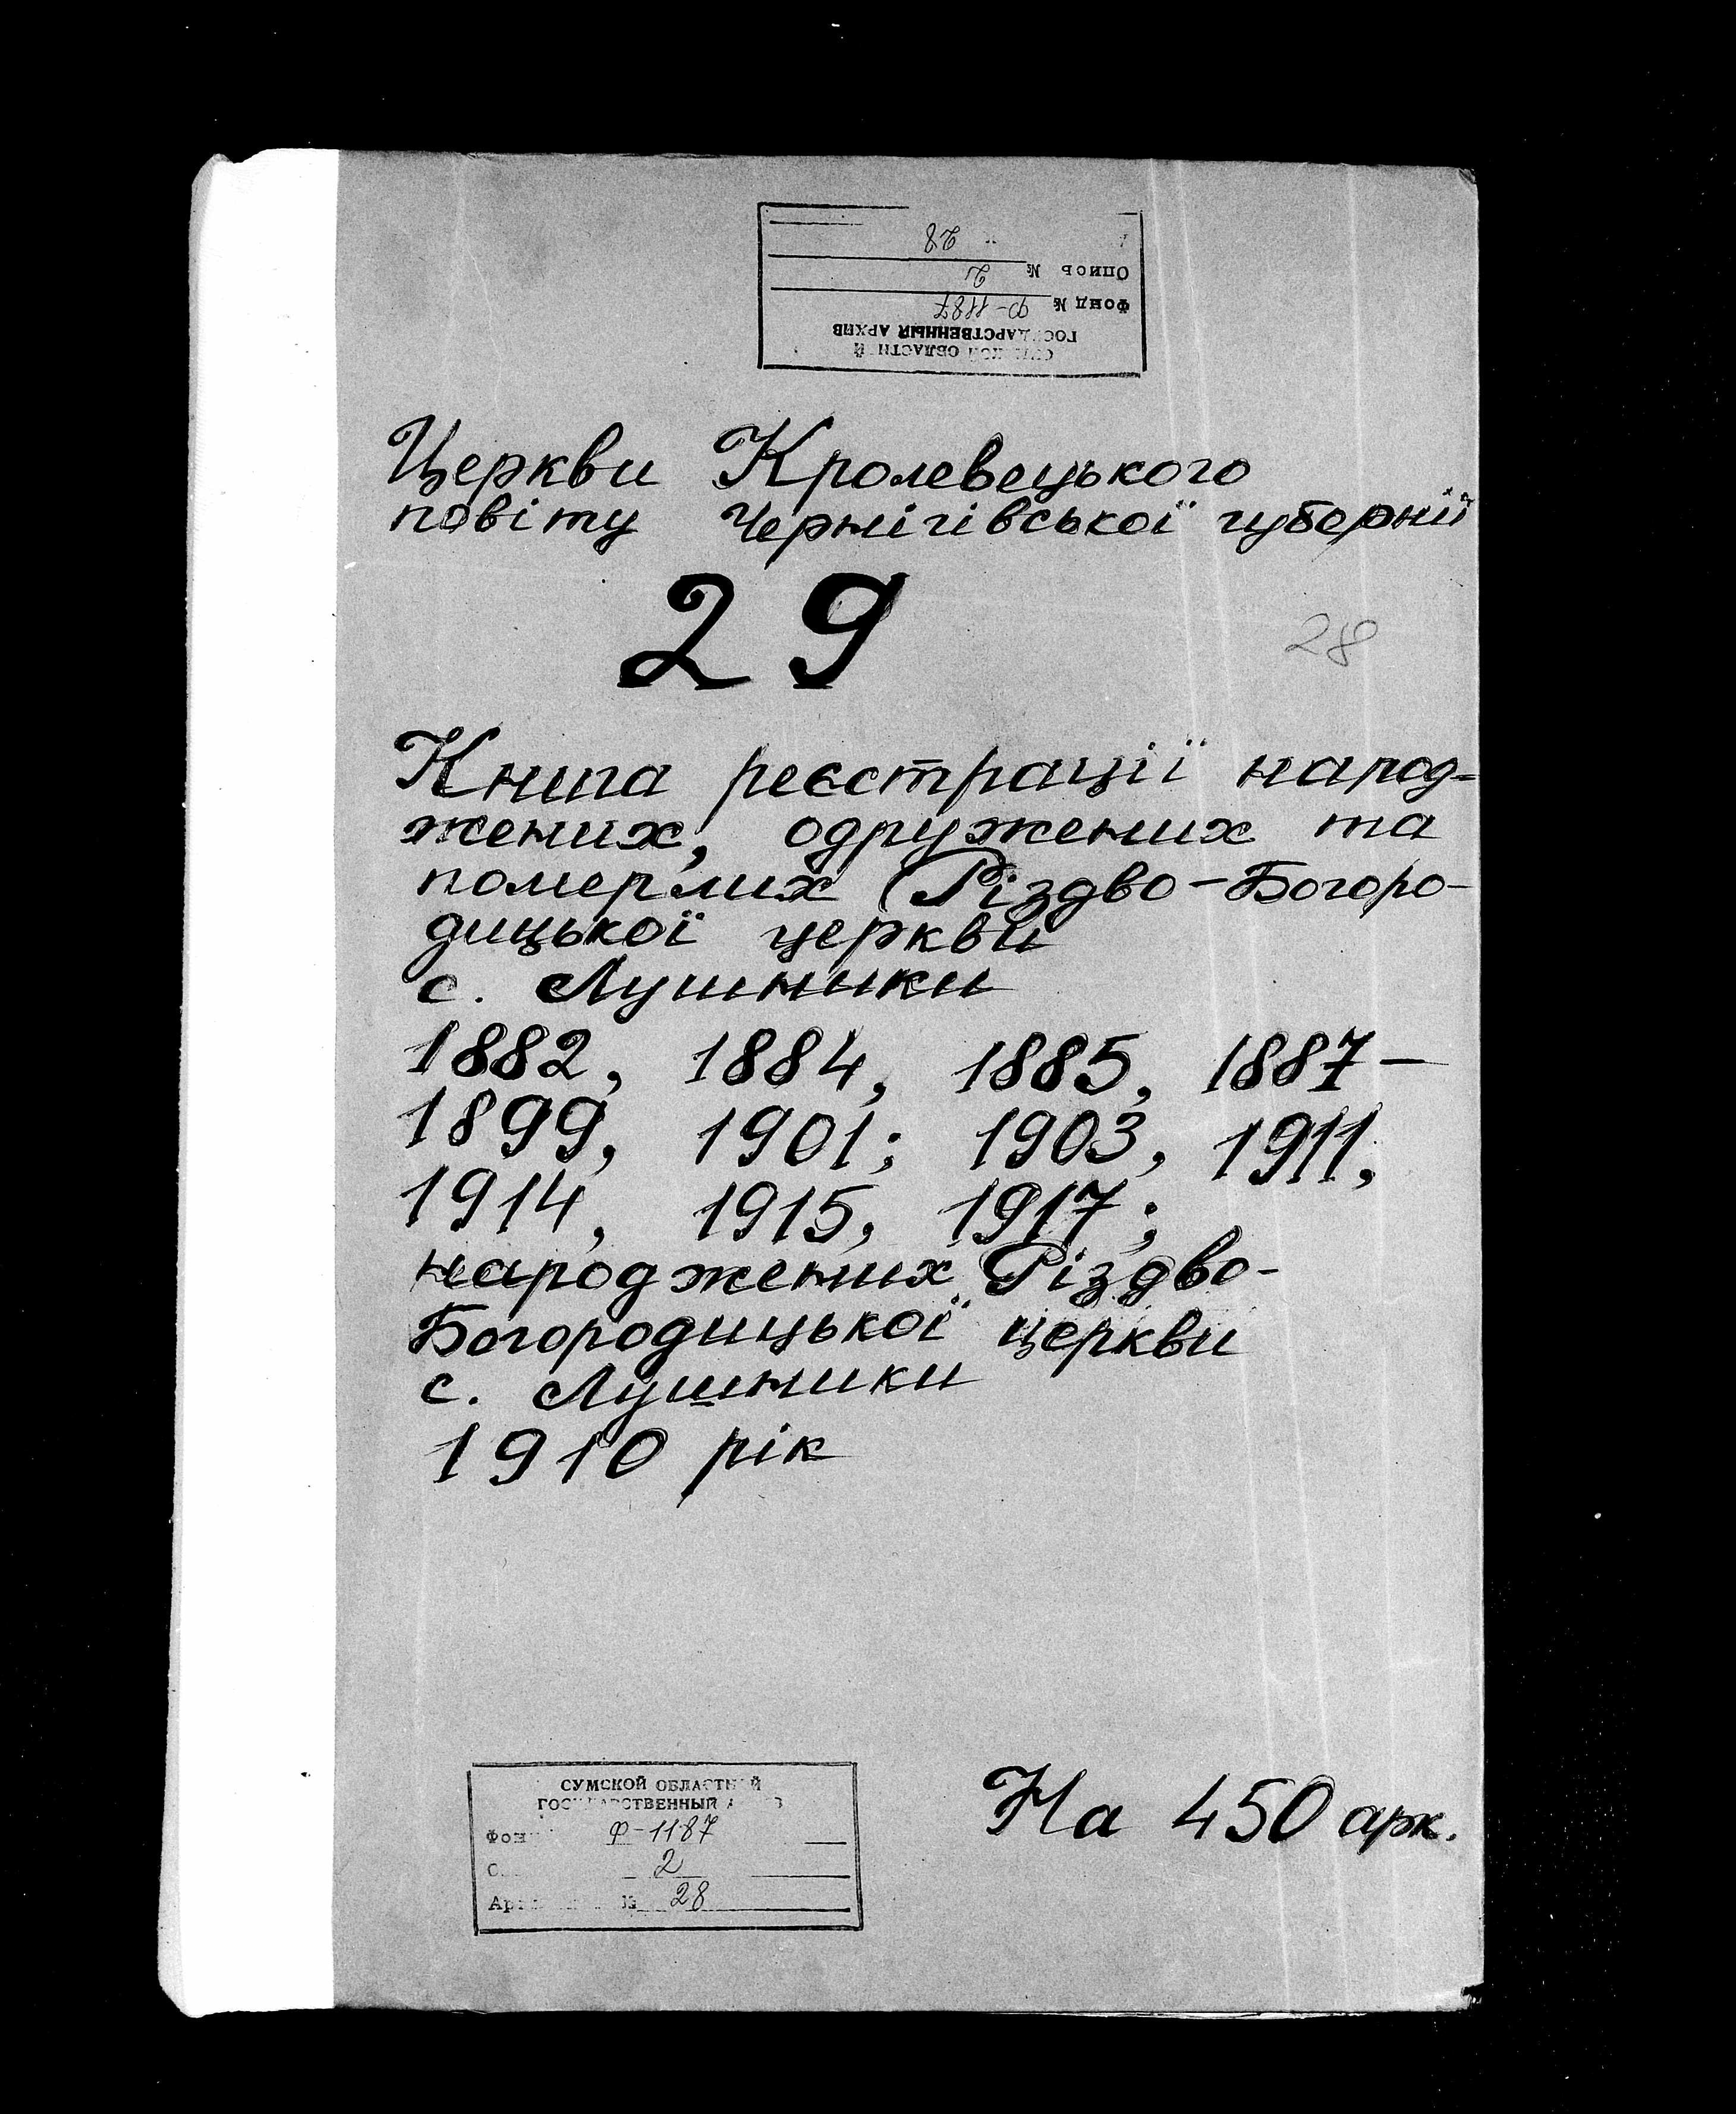 28
Опись № 2
Фонд № Ф-1187
ГОСУДАРСТВЕННЫЙ АРХИВ
ОБЛАСТНОЙ
Церкви Кролевецького
повіту Чернігівської губернії
29
28
Книга реєстрації народ-
жених, одружених та
померлих Різдво-Богоро-
дицької церкви
с. Лушники
1882, 1884, 1885, 1887-
1899, 1901; 1903, 1911,
1914, 1915, 1917;
народжених Різдво-
Богородицької церкви
с. Лушники
1910 рік
СУМСКОЙ ОБЛАСТНОЙ
ГОСУДАРСТВЕННЫЙ
Фон Ф-1187
2
№ 28
На 450 арк.